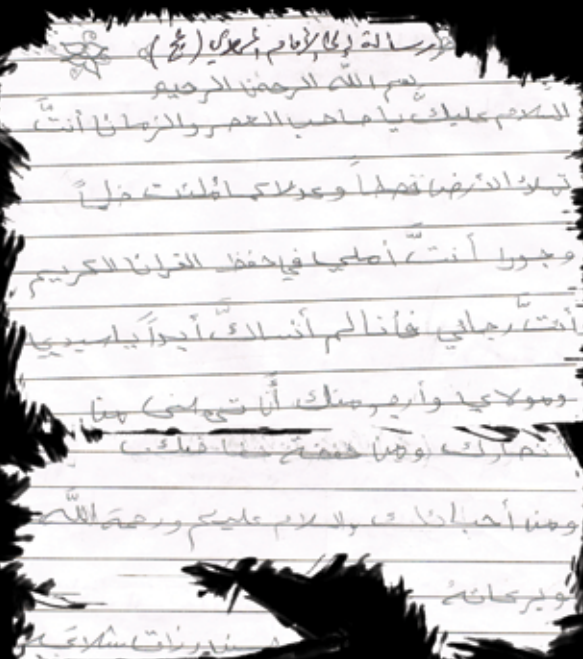 رسالة إلى الإمام المهدي (عج)
بسم الله الرحمن الرحيم
السلام عليك يا صاحب العصر والزمان أنت
تملاء الأرض قسطاً وعدلا كما املئت ظلماً
وجورا أنت أملي في حفظ القران الكريم
أنت رجائي فأنا لم أنساك أبداً يا سيدي
ومولاي وأرجو منك أن تجعلني من
نصارك ومن
ومن أحبائك والسلام عليكم ورحمة الله
وبركاته